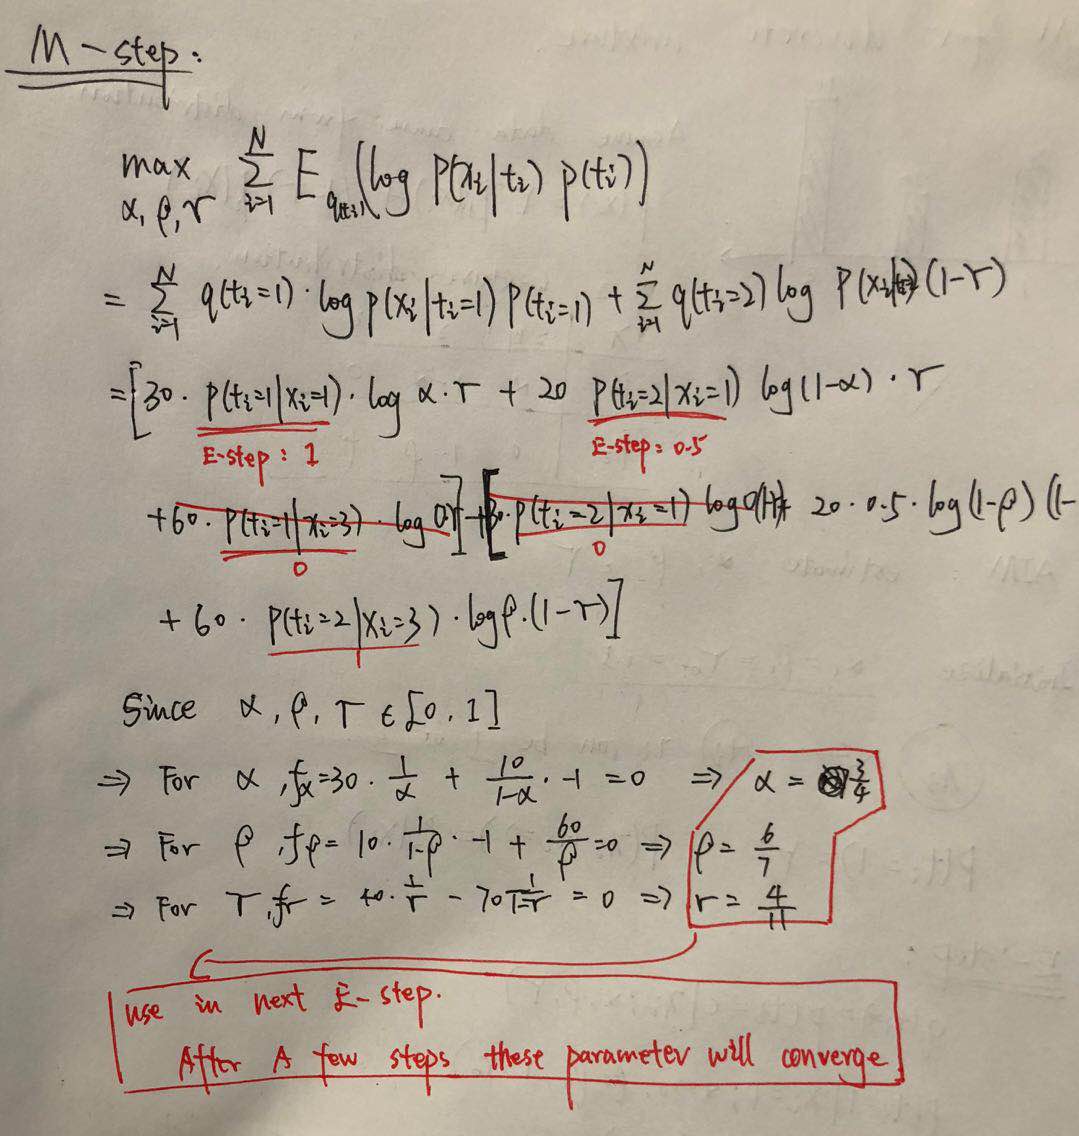 M-step:
max α, ρ, r ∑_{i=1}^{N} E_{q(ti)} (log P(xi|ti) p(ti))
= ∑_{i=1}^{N} q(ti=1)·log p(xi|ti=1) P(ti=1) + ∑_{i=1}^{N} q(ti=2) log P(xi|ti) (1-r)
= [30· P(ti=1|xi=1)· log α·r + 20 P(ti=2|xi=1) log(1-α)·r
E-step: 1 E-step: 0.5
+60· P(ti=1|xi=3)· log 0] + [30·P(ti=2|xi=1) log 0(1-r)+ 20·0.5·log(1-ρ)(1-
0 0
+ 60· P(ti=2|xi=3)·logρ·(1-r)]
1
Since α, ρ, r ∈ [0, 1]
⇒ For α, fα=30·1/α + 10/(1-α)·-1 = 0 ⇒ α = 3/4
⇒ For ρ, fρ= 10·1/(1-ρ)·-1 + 60/ρ=0 ⇒ ρ= 6/7
⇒ For r, fr = 40·1/r - 70 1/(1-r) = 0 ⇒ r= 4/11
use in next E-step.
After A few steps these parameter will converge